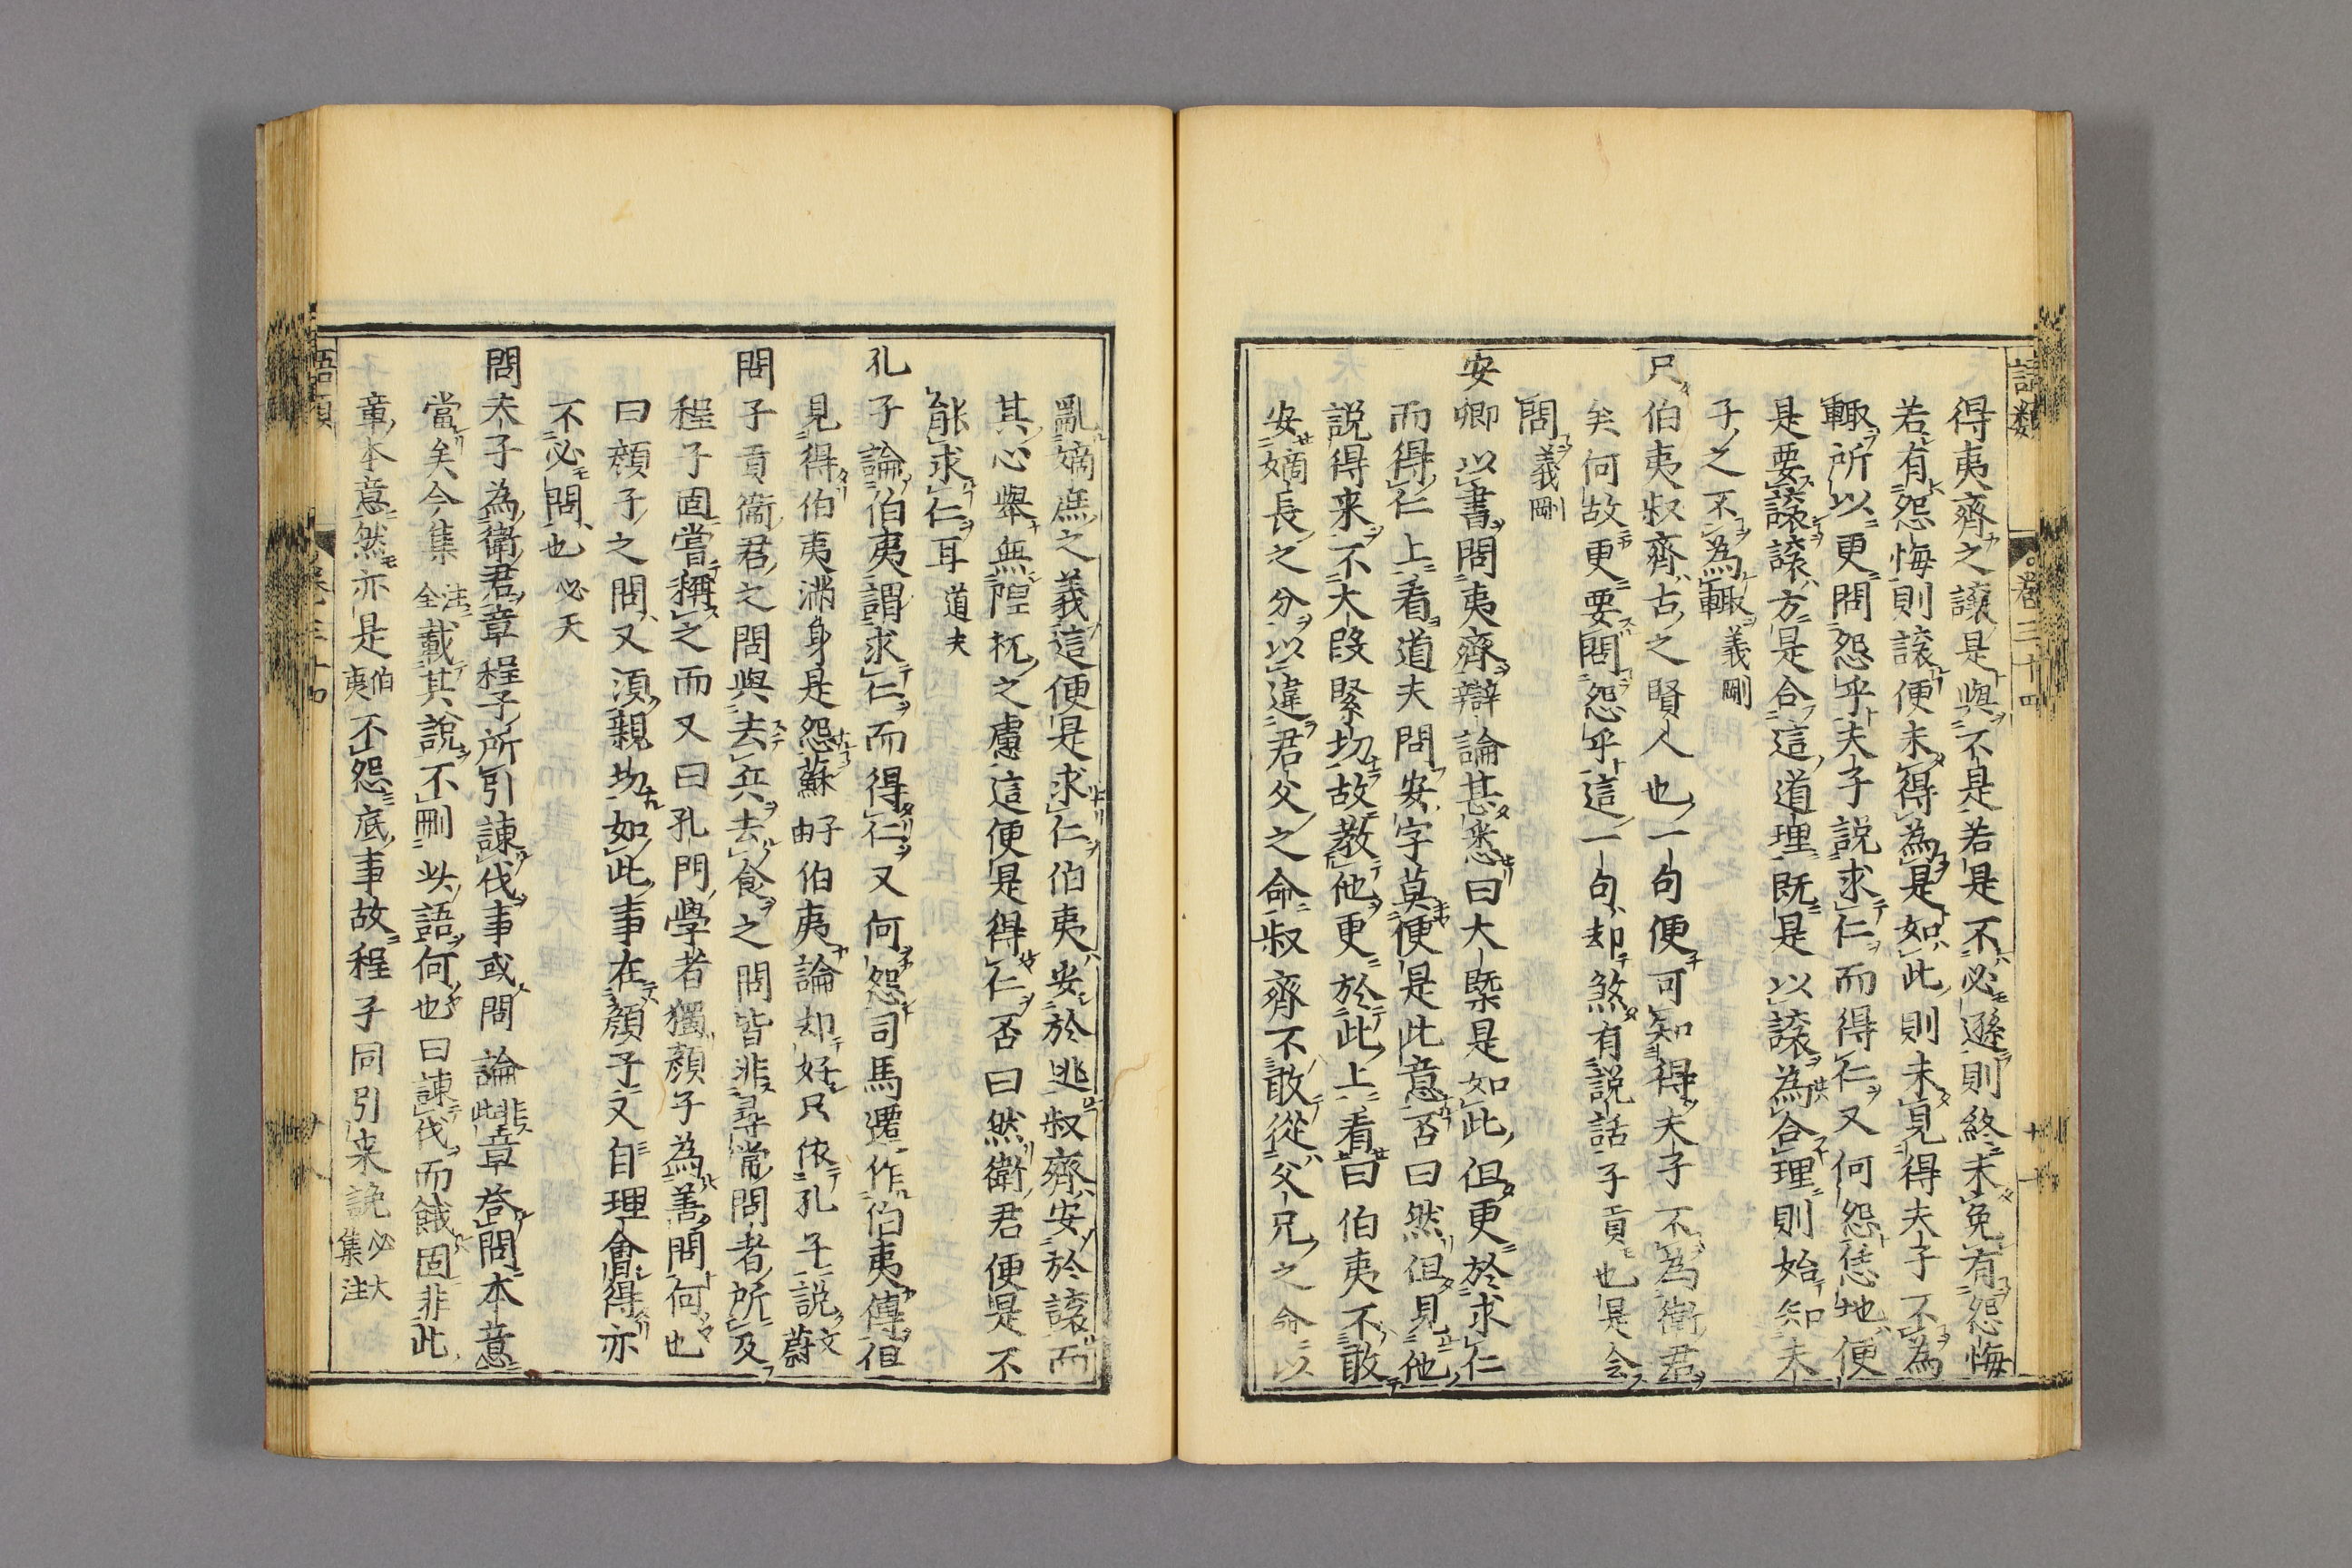 語類 卷三十四 十一
得夷齊之讓是與不是若是不必遜則終未免有怨悔
若有怨悔則讓便未得為是如此則未見得夫子不為
輒所以更問怨乎夫子說求仁而得仁又何怨恁地便
是要讓讓方是合這道理既是以讓為合理則始知夫
子之不為輒 義剛
只伯夷叔齊古之賢人也一句便可知得夫子不為衛君
矣何故更要問怨乎這一句却煞有説話子貢也是会
問 義剛
安卿以書問夷齊辯論甚悉曰大槩是如此但更於求仁
而得仁上看道夫問安字莫便是此意否曰然但見他
説得来不大段緊切故教他更於此上看曰伯夷不敢
安嫡長之分以違君父之命叔齊不敢從父兄之命以
亂嫡庶之義這便是求仁伯夷安於逃叔齊安於讓而
其心舉無隉杌之慮這便是得仁否曰然衛君便是不
能求仁耳 道夫
孔子論伯夷謂求仁而得仁又何怨司馬遷作伯夷傳但
見得伯夷滿身是怨蘇子由伯夷論却好只依孔子説 文蔚
問子貢衛君之問與去兵去食之問皆非尋常問者所及
程子固嘗稱之而又曰孔門學者獨顔子為善問何也
曰顔子之問又須親切如此事在顔子又自理會得亦
不必問也 必大
問夫子為衛君章程子所引諫伐事或問論非此章荅問本意
當矣今集注全載其說不刪此語何也曰諫伐而餓固非此
章本意然亦是伯夷不怨底事故程子同引来説 必大 集注
語類